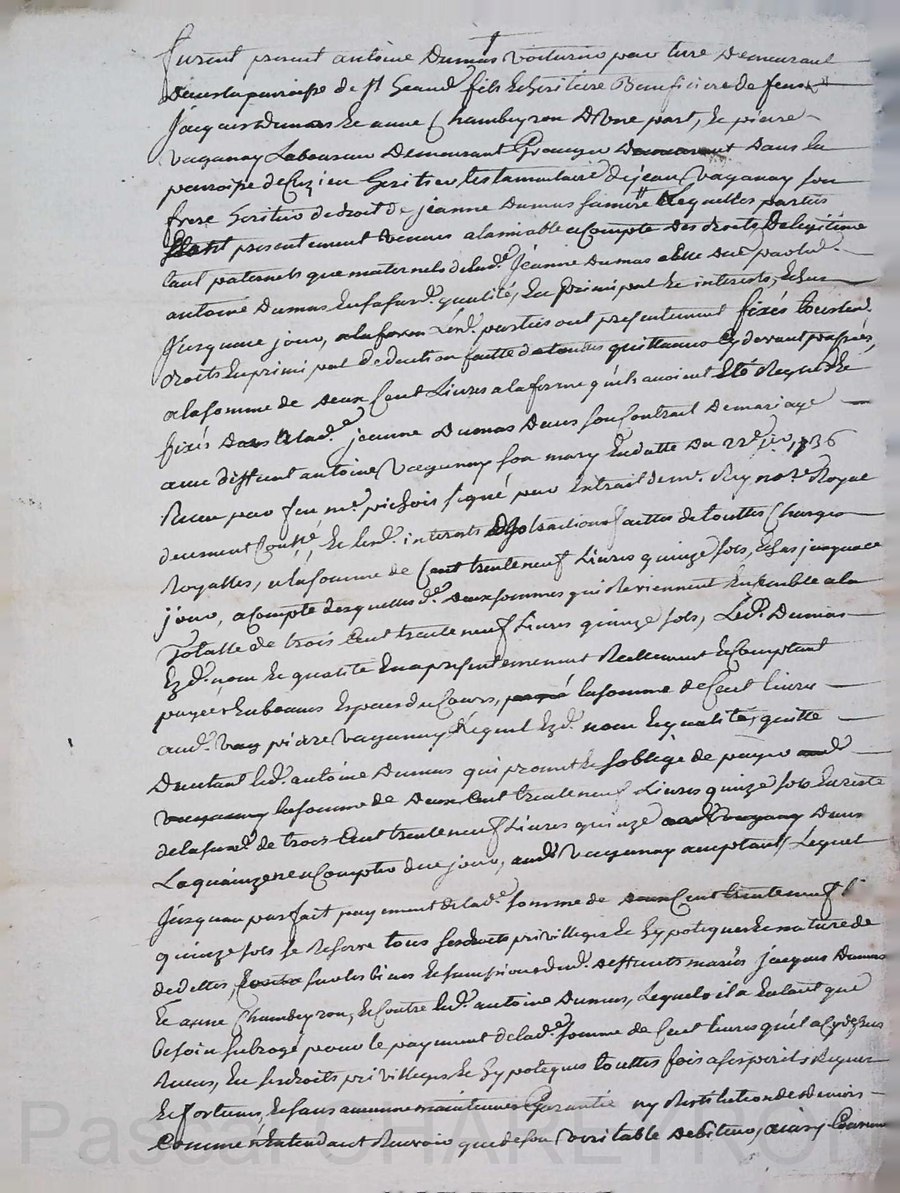 furent present antoine Dumas voiturier par terre Demeurant
Dans la paroisse de St Geand fils et heritier Beneficiere de feus
Jacques Dumas et anne Chambeyron D'Une part, Et pierre
vaganay Laboureur Demeurant Dans la
paroisse de Cuzieu heritier testamentaire de jean Vaganay son
frere heritier de droit de jeanne Dumas sa mere Lesquelles parties
presentement venues alamiable a Compte Des droits De legitime
tant paternels que maternels de lad.e Jeanne Dumas a elle deue par led.
antoine Dumas en sa susd. qualité, En principal Et interests, Echus
Jusqu'a ce jour, a la forme Led. parties ont presentement fixés
droits En principal deduction faitte de toutes quittances Cy devant passées,
a la somme de Deux Cent Livres a la forme qu'ils avoient Eté Regus Et
fixés Dans lad.e jeanne Dumas Dans son Contrat De mariage
avec deffunt antoine Vaganay son mary En datte Du 22e 1736
Receu par feu me pichois signé par Extrait de mr. Rey nore Royal
deuement Con.lé, Et les d. interests faittes de touttes Charges
Royalles, a la somme de Cent trente neuf Livres quinze sols, Echus jusqua ce
jour, a Compte desquelles d.es Deux sommes qui Reviennent Ensemble a la
Totalle de trois Cent trente neuf Livres quinze sols, Led. Dumas
Ezd. nom Et qualité En a presentement Reellement Et Comptant
payées En bonnes Especes du Cours, la somme de Cent livres
aud. pierre Vaganay Lequel Ezd. nom Et qualité, quitte
D'autant led. antoine Dumas qui promet Et soblige de payer aud.
vaganay la somme de Deux Cent trente neuf Livres quinze sols En reste
de la susd. de trois Cent trente neuf Livres quinze Dans
La quinzene a Compter du jour, aud. Vaganay acceptant, Lequel
Jusqu'au parfait payement de lad.e somme de Deux Cent trente neuf l.
quinze sols se Reserve tous ses droits privilleges Et hypoteques Et nature de
de dettes, sur les biens Et successions desd. deffunts mariés jacques Dumas
Et anne Chambeyron, Et Contre led. antoine Dumas, Lequel il a Entant que
Besoin subrogé pour le payement de lad.e somme de Cent livres qu'il a Cy dessus
Receus, En ses droits privilleges Et hypoteques touttes fois a ses perils Risques
Et fortunes, Et sans aucune maintenue Garantie ny Restitution de Deniers
Comme n'Entendant Recevoir que de son veritable Debiteur, ainsy Convenu
Pascal CHAREYRON